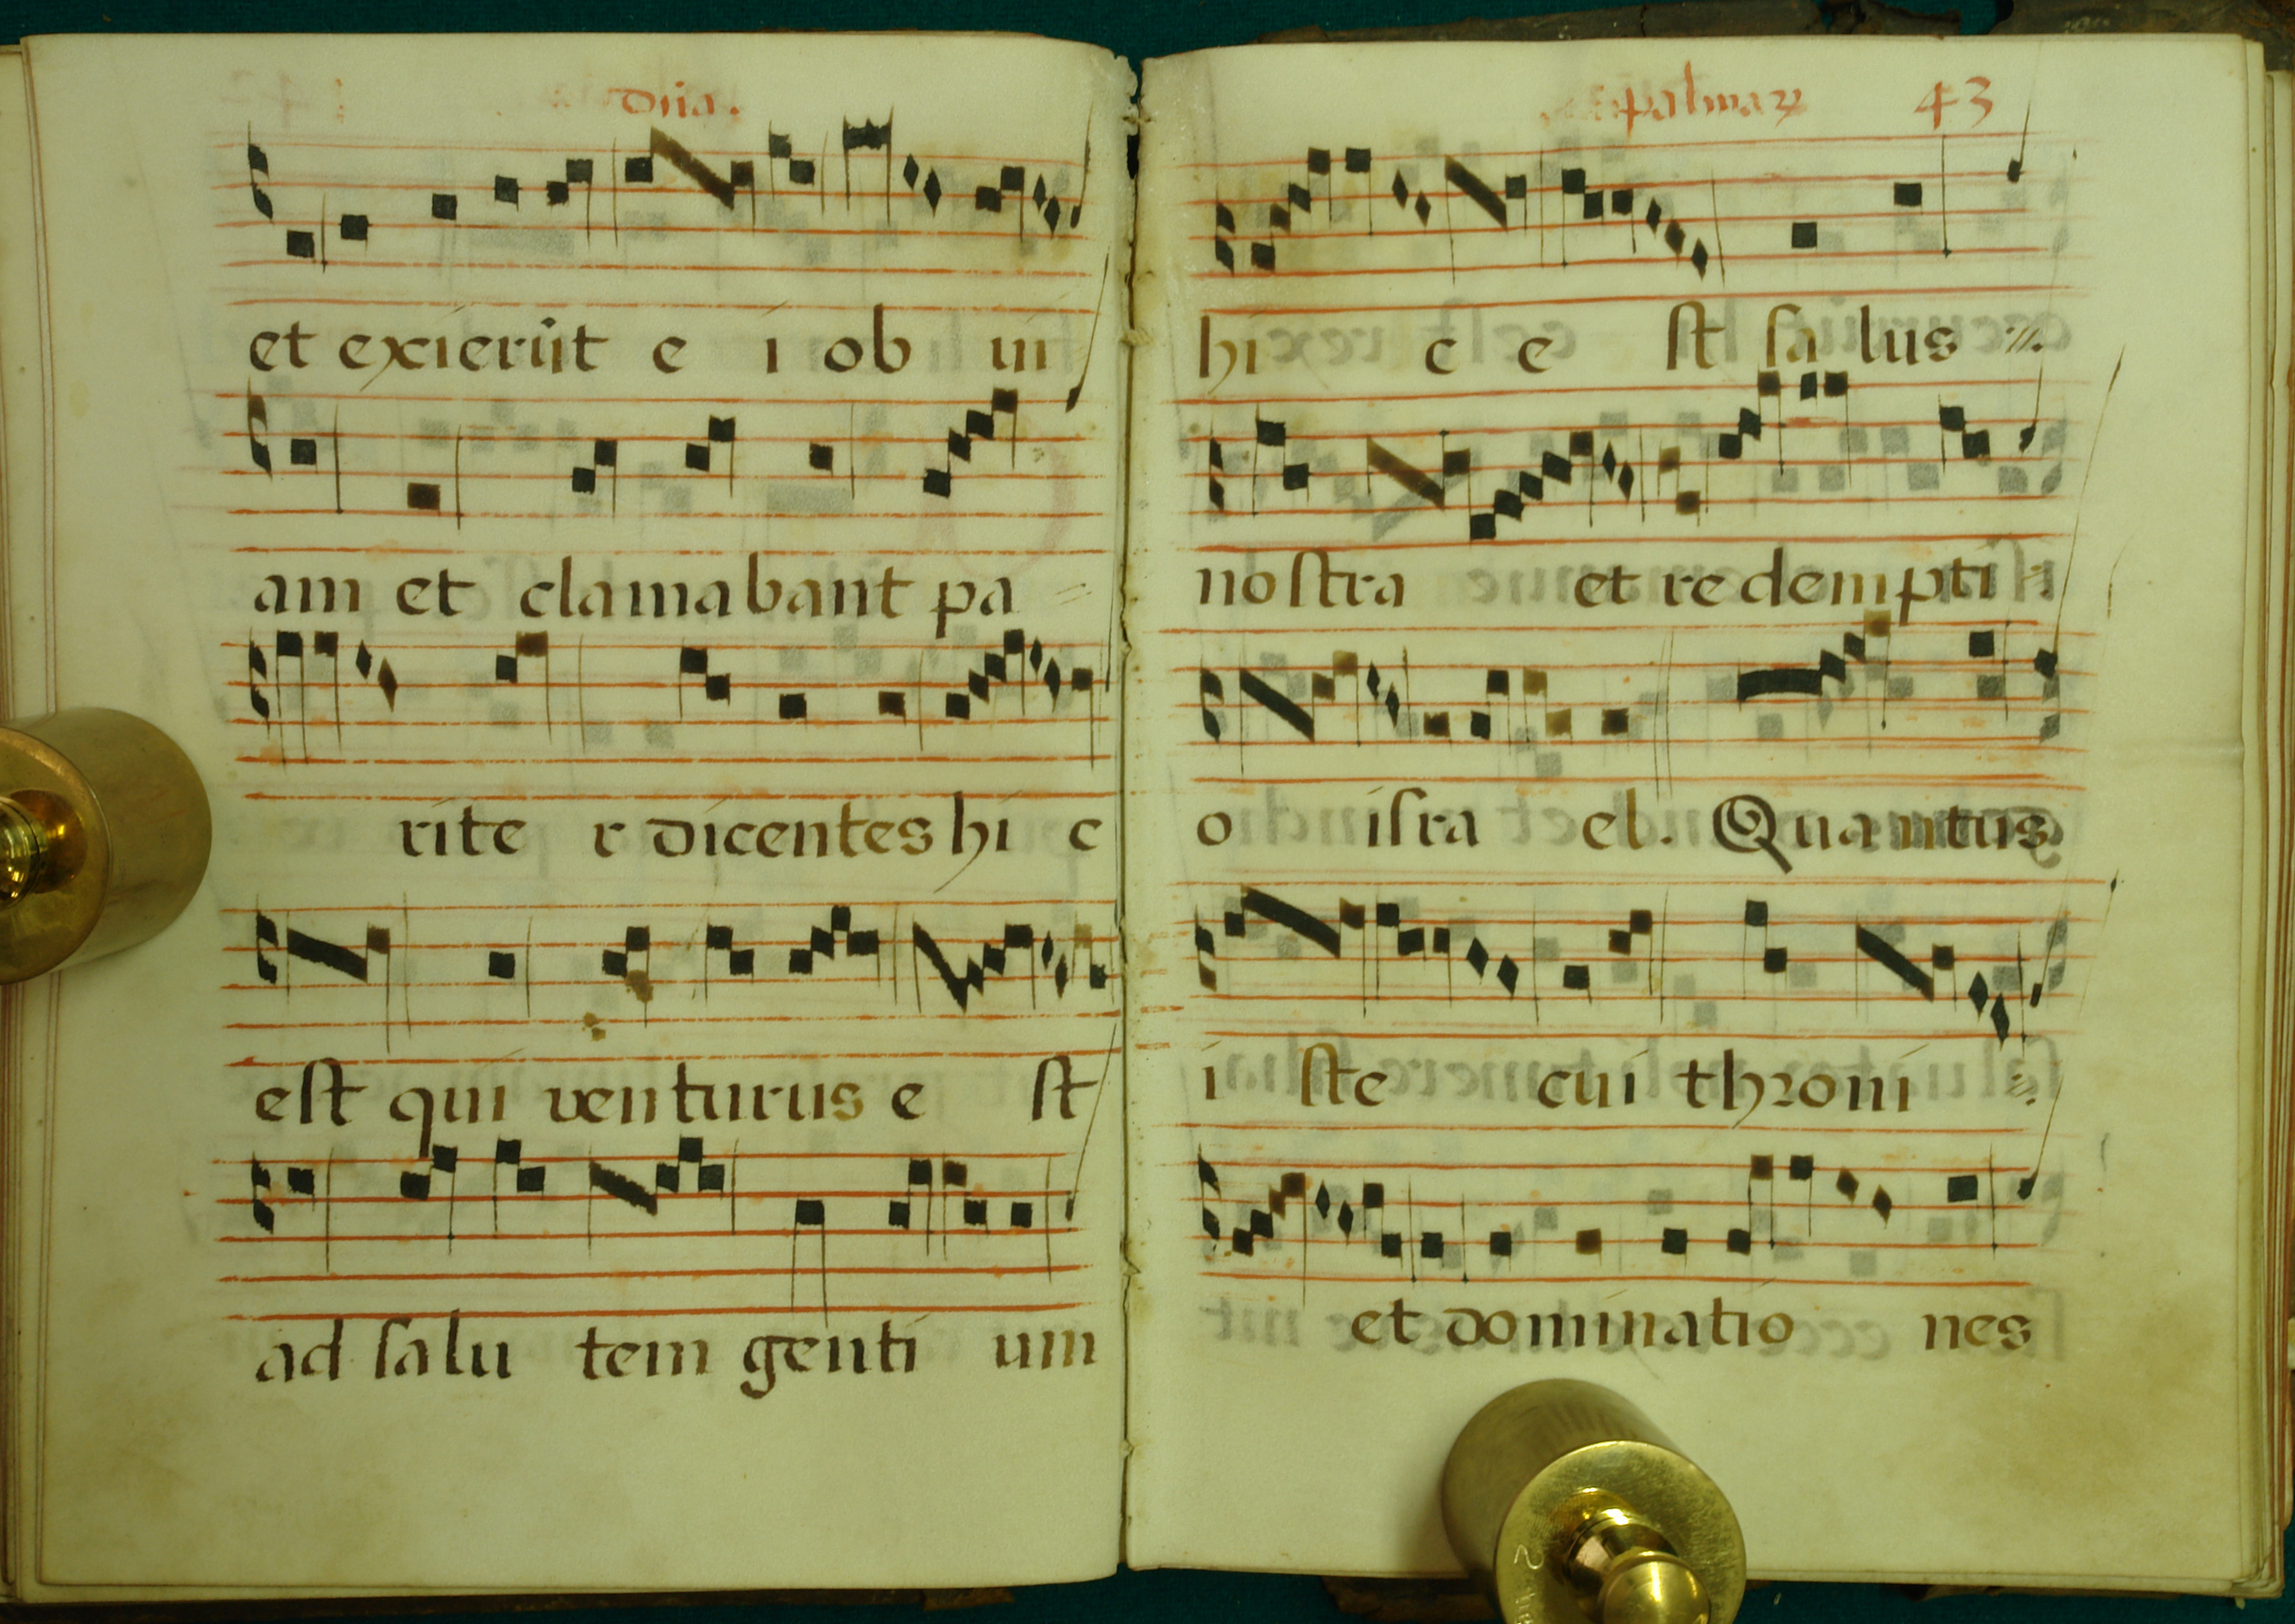 dn̄a.
et exierūt e i ob ui
am et clamabant pa =
rite r dicentes hi c
est qui venturus e st
ad salu tem genti um
palmaꝝ 43
hi c e st sa lus =
no stra et re dempti =
o isra el. Quantus
i ste cui throni =
et dominatio nes